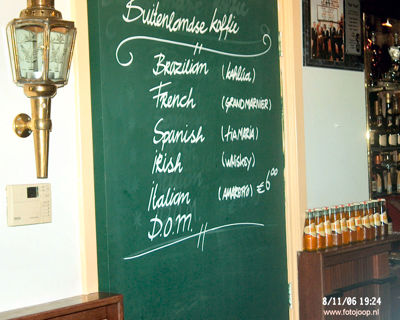 Buitenlandse koffie
Brazilian (kahlua)
French (GRAND MARNIER)
Spanish (TIA MARIA)
Irish (WHISKEY)
Italian (AMARETTO) €6,00
D.O.M.
8/11/06 19:24
www.fotojoop.nl